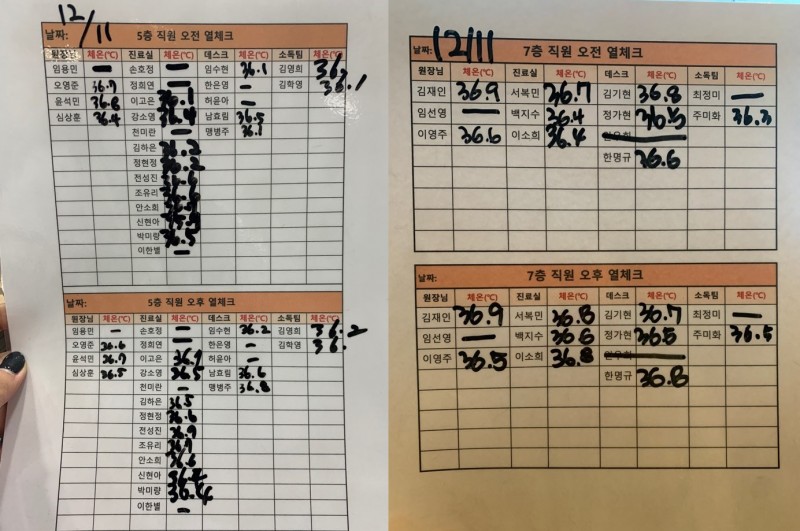 12/11
날짜: 5층 직원 오전 열체크
원장님 체온(℃) 진료실 체온(℃) 데스크 체온(℃) 소독팀 체온(℃)
임용민 — 손호정 — 임수현 36.1 김영희
오영준 36.7 정희연 — 한은영 — 김학영 36.1
윤석민 36.8 이고은 36.1 허윤아 —
심상훈 36.4 강소영 36.4 남효림 36.5
천미란 — 맹병주 36.1
김하은 36.2
정현정 36.2
전성진 36.6
조유리
안소희
신현아
박미랑 36.5
이한별 —
날짜: 5층 직원 오후 열체크
원장님 체온(℃) 진료실 체온(℃) 데스크 체온(℃) 소독팀 체온(℃)
임용민 — 손호정 — 임수현 36.2 김영희 36.2
오영준 36.6 정희연 — 한은영 — 김학영
윤석민 36.7 이고은 허윤아 —
심상훈 36.5 강소영 36.5 남효림 36.6
천미란 — 맹병주 36.8
김하은 36.5
정현정 36.6
전성진 36.9
조유리
안소희 36.6
신현아
박미랑 36.4
이한별 —
날짜: 12/11 7층 직원 오전 열체크
원장님 체온(℃) 진료실 체온(℃) 데스크 체온(℃) 소독팀 체온(℃)
김재인 36.9 서복민 36.7 김기현 36.8 최정미 —
임선영 — 백지수 36.4 정가현 36.5 주미화 36.3
이영주 36.6 이소희 36.4
한명규 36.6
날짜: 7층 직원 오후 열체크
원장님 체온(℃) 진료실 체온(℃) 데스크 체온(℃) 소독팀 체온(℃)
김재인 36.9 서복민 36.8 김기현 36.7 최정미 —
임선영 — 백지수 36.6 정가현 36.5 주미화 36.5
이영주 36.5 이소희 36.8
한명규 36.8